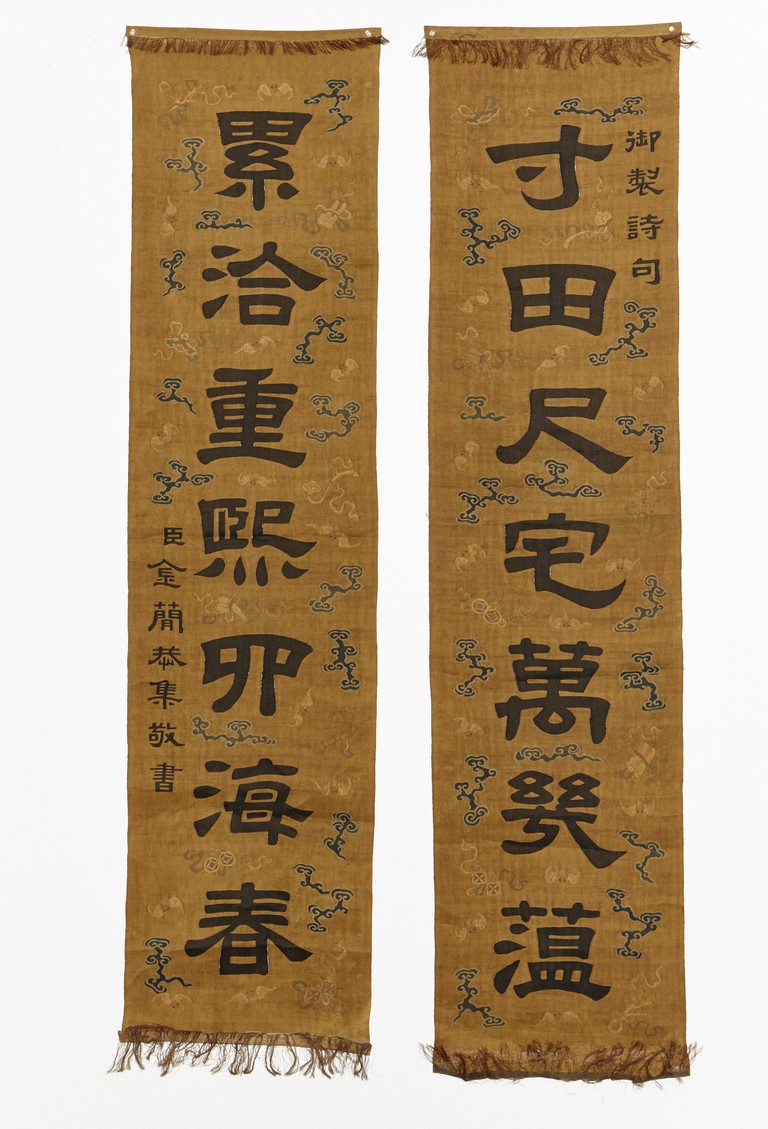 御製詩句
寸田尺宅萬幾薀
累洽重熙四海春
臣金簡恭集敬書